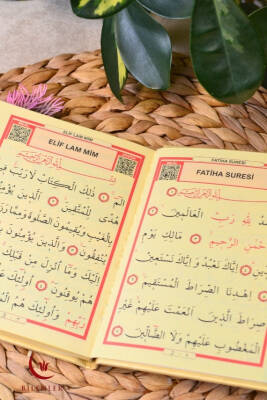 FATİHA SURESİ
FATİHA SURESİ
لِلّٰهِ رَبِّ الْعَالَمِينَ
الرَّحِيمِ مَالِكِ يَوْمِ
اِيَّاكَ نَعْبُدُ وَاِيَّاكَ نَسْتَعِينُ
اِهْدِنَا الصِّرَاطَ الْمُسْتَقِيمَ
صِرَاطَ الَّذِينَ اَنْعَمْتَ عَلَيْهِمْ غَيْرِ
الْمَغْضُوبِ عَلَيْهِمْ وَلَا الضَّالِّينَ
ELİF LAM MİM
ELİF LAM MİM
الٓمٓ ذٰلِكَ الْكِتَابُ لَا رَيْبَ
هُدًى لِلْمُتَّقِينَ اَلَّذِينَ يُؤْمِنُونَ
بِالْغَيْبِ وَيُقِيمُونَ الصَّلٰوةَ وَمِمَّا
يُنْفِقُونَ وَالَّذِينَ يُؤْمِنُونَ
اِلَيْكَ وَمَا اُنْزِلَ مِنْ قَبْلِكَ
هُمْ يُوقِنُونَ اُولٰئِكَ
رَبِّهِمْ وَاُولٰئِكَ هُمُ